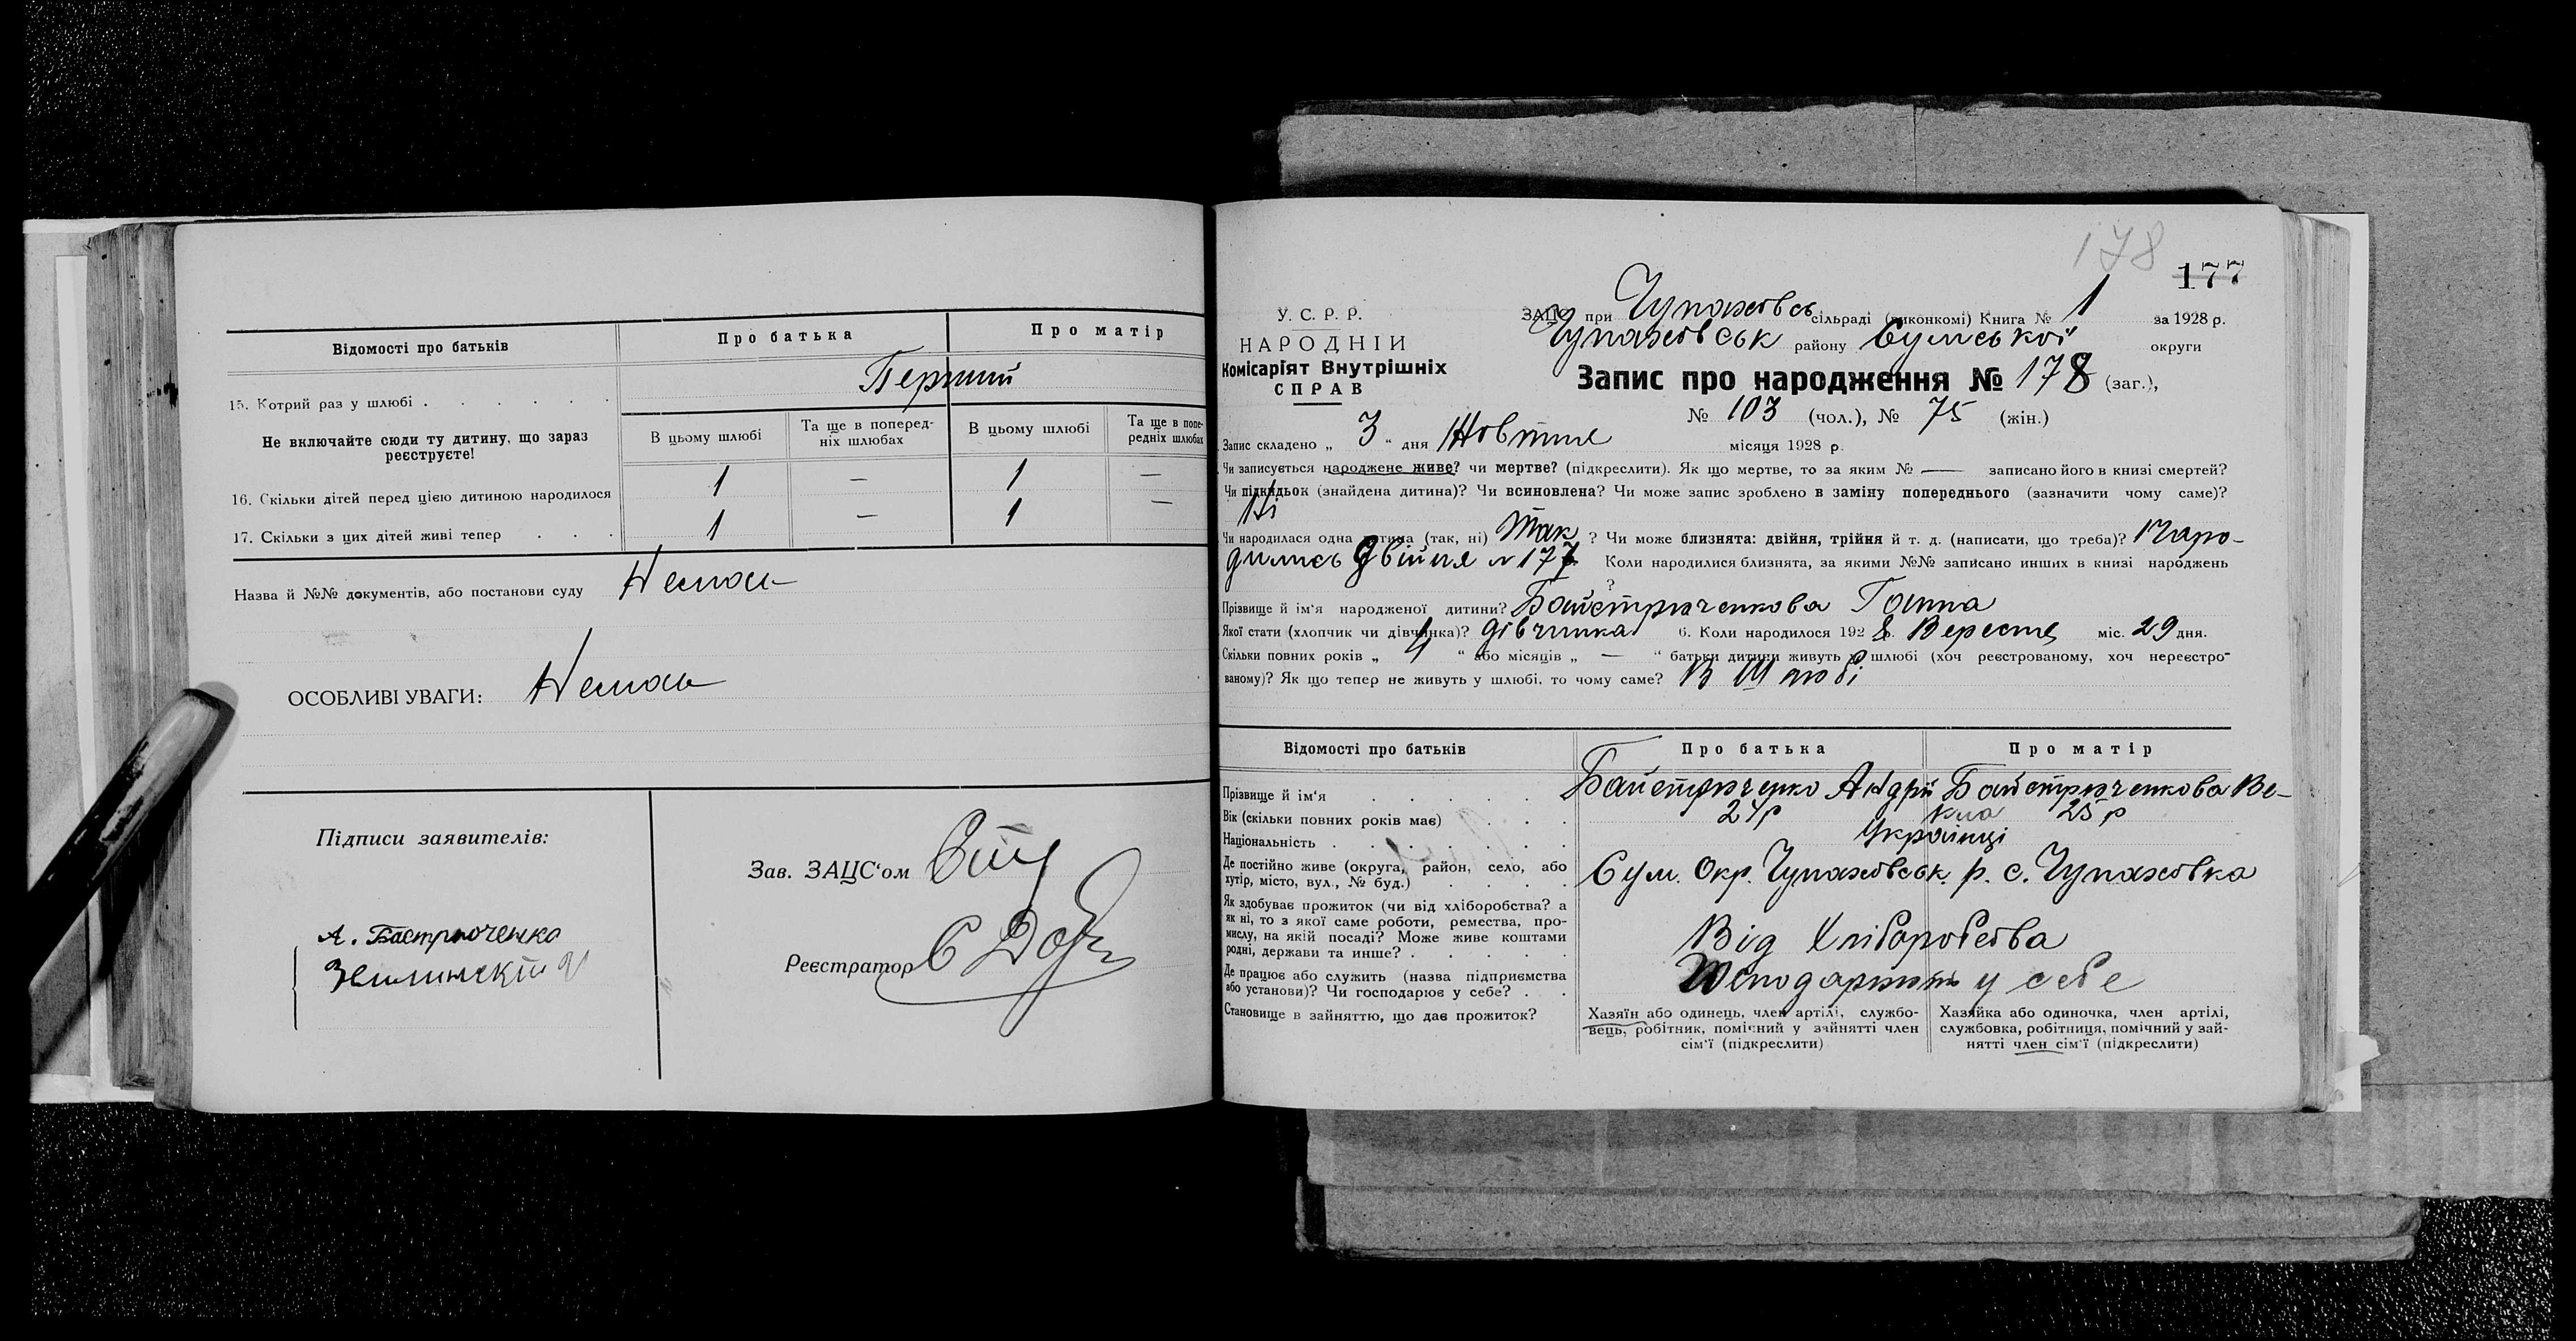 Відомості про батьків
Про батька
Про матір
15. Котрий раз у шлюбі
Перший
Не включайте сюди ту дитину, що зараз реєструєте!
В цьому шлюбі
Та ще в поперед-
ніх шлюбах
В цьому шлюбі
Та ще в попе-
редніх шлюбах
16. Скільки дітей перед цією дитиною народилося
1 — 1 —
17. Скільки з цих дітей живі тепер
1 — 1 —
Назва й №№ документів, або постанови суду Немає
ОСОБЛИВІ УВАГИ: Немає
Підписи заявителів:
А. Бастрюченко
Зав. ЗАЦС'ом
Реєстратор
178
177
У. С. Р. Р.
НАРОДНІЙ
Комісаріят Внутрішніх
СПРАВ
ЗАЦС при Чупаховсь сільраді (виконкомі) Книга № 1 за 1928 р.
Чупаховськ району Сумської округи
Запис про народження № 178 (заг.),
№ 103 (чол.), № 75 (жін.)
Запис складено „ 3 " дня Новтня місяця 1928 р.
Чи записується народжене живе? чи мертве? (підкреслити). Як що мертве, то за яким № — записано його в книзі смертей?
Чи підкидьок (знайдена дитина)? Чи всиновлена? Чи може запис зроблено в заміну попереднього (зазначити чому саме)?
Ні
Чи народилася одна дитина (так, ні) Так ? Чи може близнята: двійня, трійня й т. д. (написати, що треба)? Наро-
дились двійня № 177 Коли народилися близнята, за якими №№ записано инших в книзі народжень
?
Прізвище й ім'я народженої дитини? Байстрюченкова Ганна
Якої стати (хлопчик чи дівчинка)? дівчинка 6. Коли народилося 1928 р. Вересня міс. 29 дня.
Скільки повних років „ 4 " або місяців „ — " батьки дитини живуть у шлюбі (хоч реєстрованому, хоч нереєстро-
ваному)? Як що тепер не живуть у шлюбі, то чому саме? В Шлюбі
Відомості про батьків
Про батька
Про матір
Прізвище й ім'я
Байстрюченко Андрій
Байстрюченкова Ве-
кла
Вік (скільки повних років має)
24р
25 р
Національність
Українці
Де постійно живе (округа, район, село, або
хутір, місто, вул., № буд.)
Сум. Окр. Чупаховськ. р. с. Чупаховка
Як здобуває прожиток (чи від хліборобства? а
як ні, то з якої саме роботи, ремества, про-
мислу, на якій посаді? Може живе коштами
родні, держави та инше?
Від Хліборобсва
Де працює або служить (назва підприємства
або установи)? Чи господарює у себе?
у себе
Становище в зайняттю, що дає прожиток?
Хазяїн або одинець, член артілі, службо-
вець, робітник, помічний у зайнятті член
сім'ї (підкреслити)
Хазяйка або одиночка, член артілі,
службовка, робітниця, помічний у зай-
нятті член сім'ї (підкреслити)